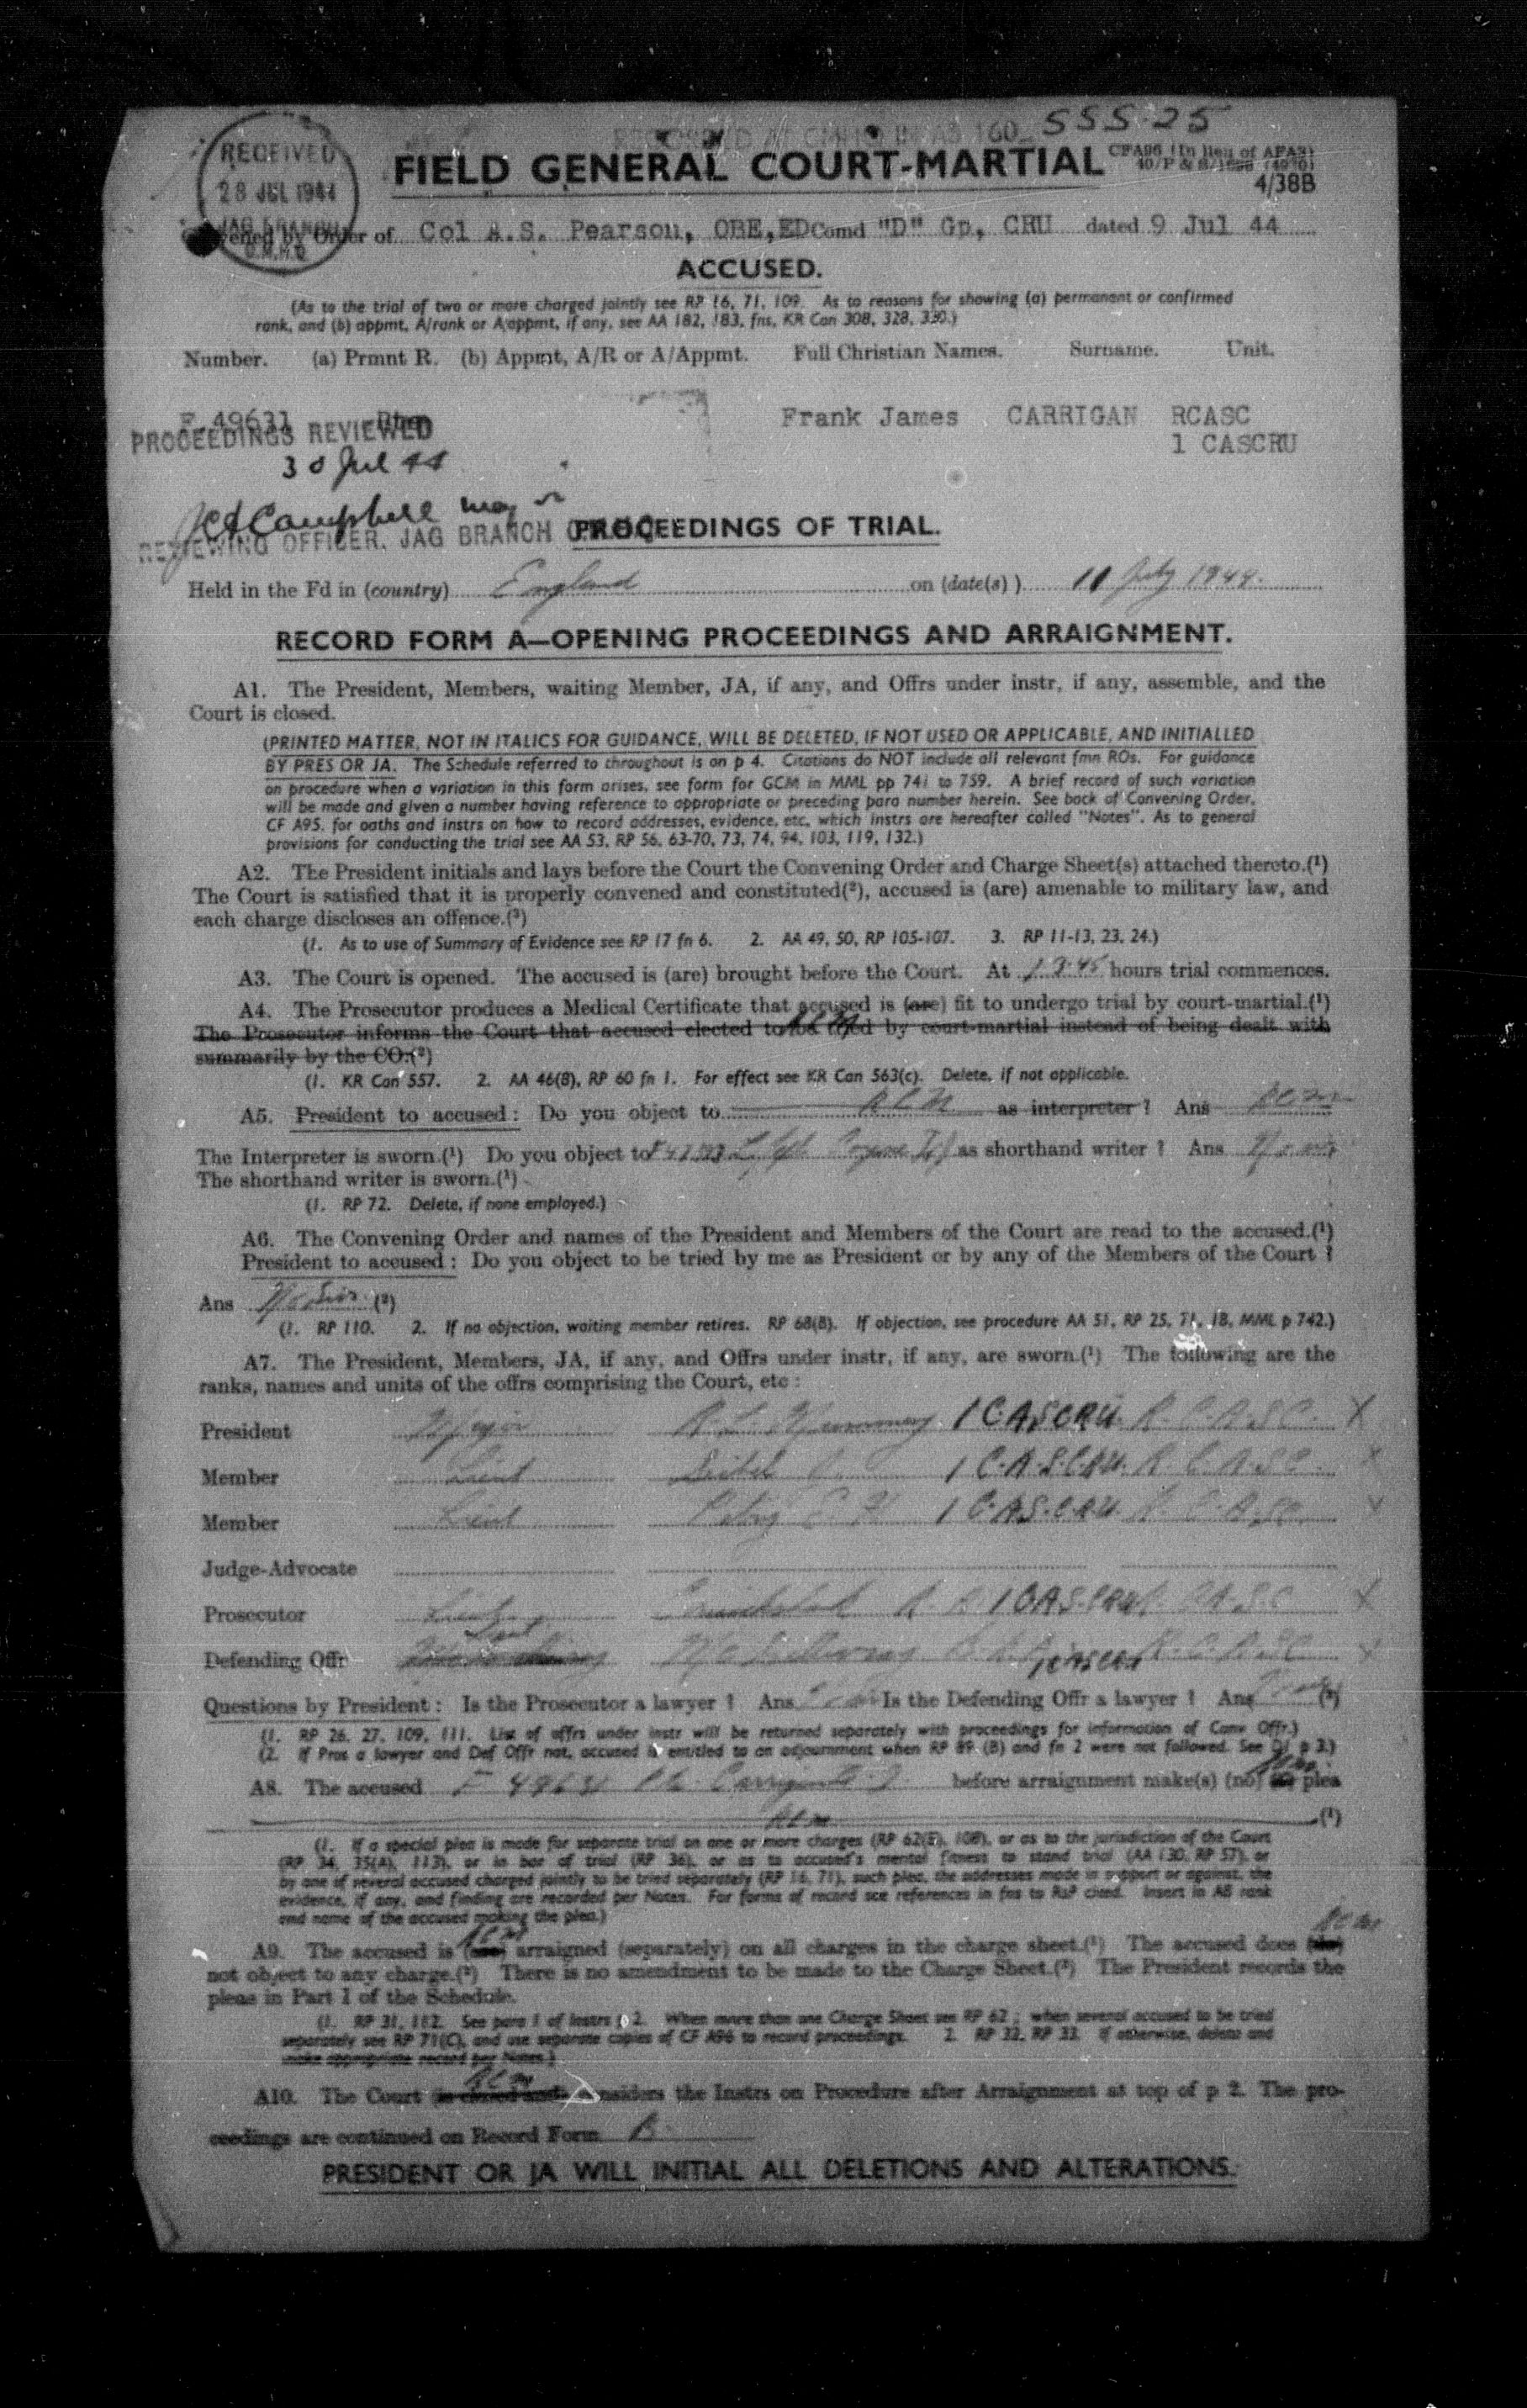 555-25
RECEIVED
28 JUL 1944
JAG BRANCH
C.M.H.Q
FIELD GENERAL COURT-MARTIAL
CFA96 (In lieu of AFA3)
4/38B
vened by Order of Col A.S. Pearson, OBE,ED Comd "D" Gp, CRU dated 9 Jul 44
ACCUSED.
(As to the trial of two or more charged jointly see RP 16, 71, 109. As to reasons for showing (a) permanent or confirmed
rank, and (b) appmt, A/rank or A/appmt, if any, see AA 182, 183, fns, KR Can 308, 328, 330.)
Number. (a) Prmnt R. (b) Appmt, A/R or A/Appmt. Full Christian Names. Surname. Unit.
F 49631 Pte Frank James CARRIGAN RCASC
1 CASCRU
PROCEEDINGS REVIEWED
30 Jul 44
Campbell Maj
REVIEWING OFFICER, JAG BRANCH
PROCEEDINGS OF TRIAL.
Held in the Fd in (country) England on (date(s) ) 11 July 1944.
RECORD FORM A—OPENING PROCEEDINGS AND ARRAIGNMENT.
A1. The President, Members, waiting Member, JA, if any, and Offrs under instr, if any, assemble, and the
Court is closed.
(PRINTED MATTER, NOT IN ITALICS FOR GUIDANCE, WILL BE DELETED, IF NOT USED OR APPLICABLE, AND INITIALLED
BY PRES OR JA. The Schedule referred to throughout is on p 4. Citations do NOT include all relevant fmn ROs. For guidance
on procedure when a variation in this form arises, see form for GCM in MML pp 741 to 759. A brief record of such variation
will be made and given a number having reference to appropriate or preceding para number herein. See back of Convening Order,
CF A95, for oaths and instrs on how to record addresses, evidence, etc, which instrs are hereafter called "Notes". As to general
provisions for conducting the trial see AA 53, RP 56, 63-70, 73, 74, 94, 103, 119, 132.)
A2. The President initials and lays before the Court the Convening Order and Charge Sheet(s) attached thereto.(¹)
The Court is satisfied that it is properly convened and constituted(²), accused is (are) amenable to military law, and
each charge discloses an offence.(³)
(1. As to use of Summary of Evidence see RP 17 fn 6. 2. AA 49, 50, RP 105-107. 3. RP 11-13, 23, 24.)
A3. The Court is opened. The accused is (are) brought before the Court. At 13.45 hours trial commences.
A4. The Prosecutor produces a Medical Certificate that accused is (are) fit to undergo trial by court-martial.(¹)
The Prosecutor informs the Court that accused elected to be tried by court-martial instead of being dealt with
summarily by the CO.(²)
(1. KR Can 557. 2. AA 46(8), RP 60 fn 1. For effect see KR Can 563(c). Delete, if not applicable.
A5. President to accused : Do you object to as interpreter ? Ans
The Interpreter is sworn.(¹) Do you object to as shorthand writer ? Ans
The shorthand writer is sworn.(¹)
(1. RP 72. Delete, if none employed.)
A6. The Convening Order and names of the President and Members of the Court are read to the accused.(¹)
President to accused : Do you object to be tried by me as President or by any of the Members of the Court ?
Ans No Sir. (²)
(1. RP 110. 2. If no objection, waiting member retires. RP 68(B). If objection, see procedure AA 51, RP 25, 71, 18, MML p 742.)
A7. The President, Members, JA, if any, and Offrs under instr, if any, are sworn.(¹) The following are the
ranks, names and units of the offrs comprising the Court, etc :
President Major 1 CASCRU. R.C.A.S.C. X
Member Lieut 1 C.A.S.C.R.U. R.C.A.S.C. X
Member Lieut 1 C.A.S.C.R.U R.C.A.S.C. X
Judge-Advocate
Prosecutor Lieut 1 CASCRU R.C.A.S.C X
Defending Offr 1 CASCRU R.C.A.S.C X
Questions by President : Is the Prosecutor a lawyer ? Ans Is the Defending Offr a lawyer ? Ans (²)
(1. RP 26, 27, 109, 111. List of offrs under instr will be returned separately with proceedings for information of Conv Offr.)
(2. If Pros a lawyer and Def Offr not, accused is entitled to an adjournment when RP 89 (B) and fn 2 were not followed. See D1 p 3.)
A8. The accused F 49631 Pte Carrigan F. J. before arraignment make(s) (no) plea
(¹)
(1. If a special plea is made for separate trial on one or more charges (RP 62(E), 108), or as to the jurisdiction of the Court
(RP 34, 35(A), 113), or in bar of trial (RP 36), or as to accused's mental fitness to stand trial (AA 130, RP 57), or
by one of several accused charged jointly to be tried separately (RP 16, 71), such plea, the addresses made in support or against, the
evidence, if any, and finding are recorded per Notes. For forms of record see references in fns to RsP cited. Insert in A8 rank
and name of the accused making the plea.)
A9. The accused is (are) arraigned (separately) on all charges in the charge sheet.(¹) The accused does (do)
not object to any charge.(²) There is no amendment to be made to the Charge Sheet.(²) The President records the
pleas in Part I of the Schedule.
(1. RP 31, 112. See para 1 of Instrs p 2. When more than one Charge Sheet see RP 62 ; when several accused to be tried
separately see RP 71(C), and use separate copies of CF A96 to record proceedings. 2. RP 32, RP 33. If otherwise, delete and
make appropriate record per Notes.)
A10. The Court is closed and considers the Instrs on Procedure after Arraignment at top of p 2. The pro-
ceedings are continued on Record Form B.
PRESIDENT OR JA WILL INITIAL ALL DELETIONS AND ALTERATIONS.